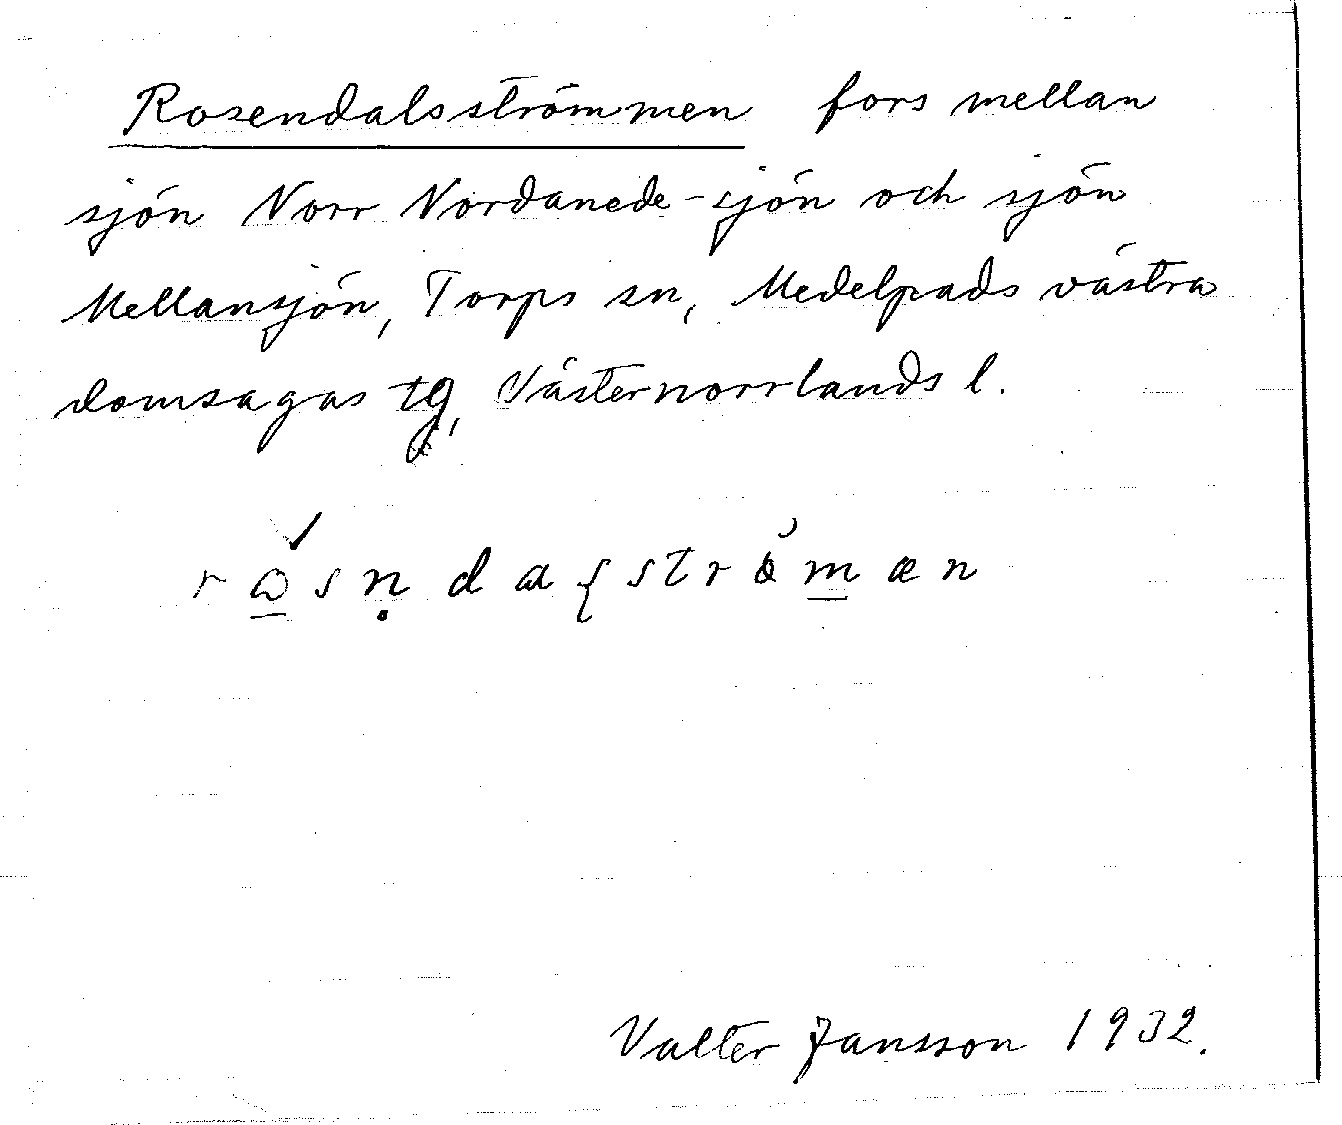 Rosendalsströmmen fors mellan
sjön Norr Nordanede-sjön och sjön
Mellansjön, Torps sn, Medelpads västra
domsagas tg, Västernorrlands l.
Valter Jansson 1932.